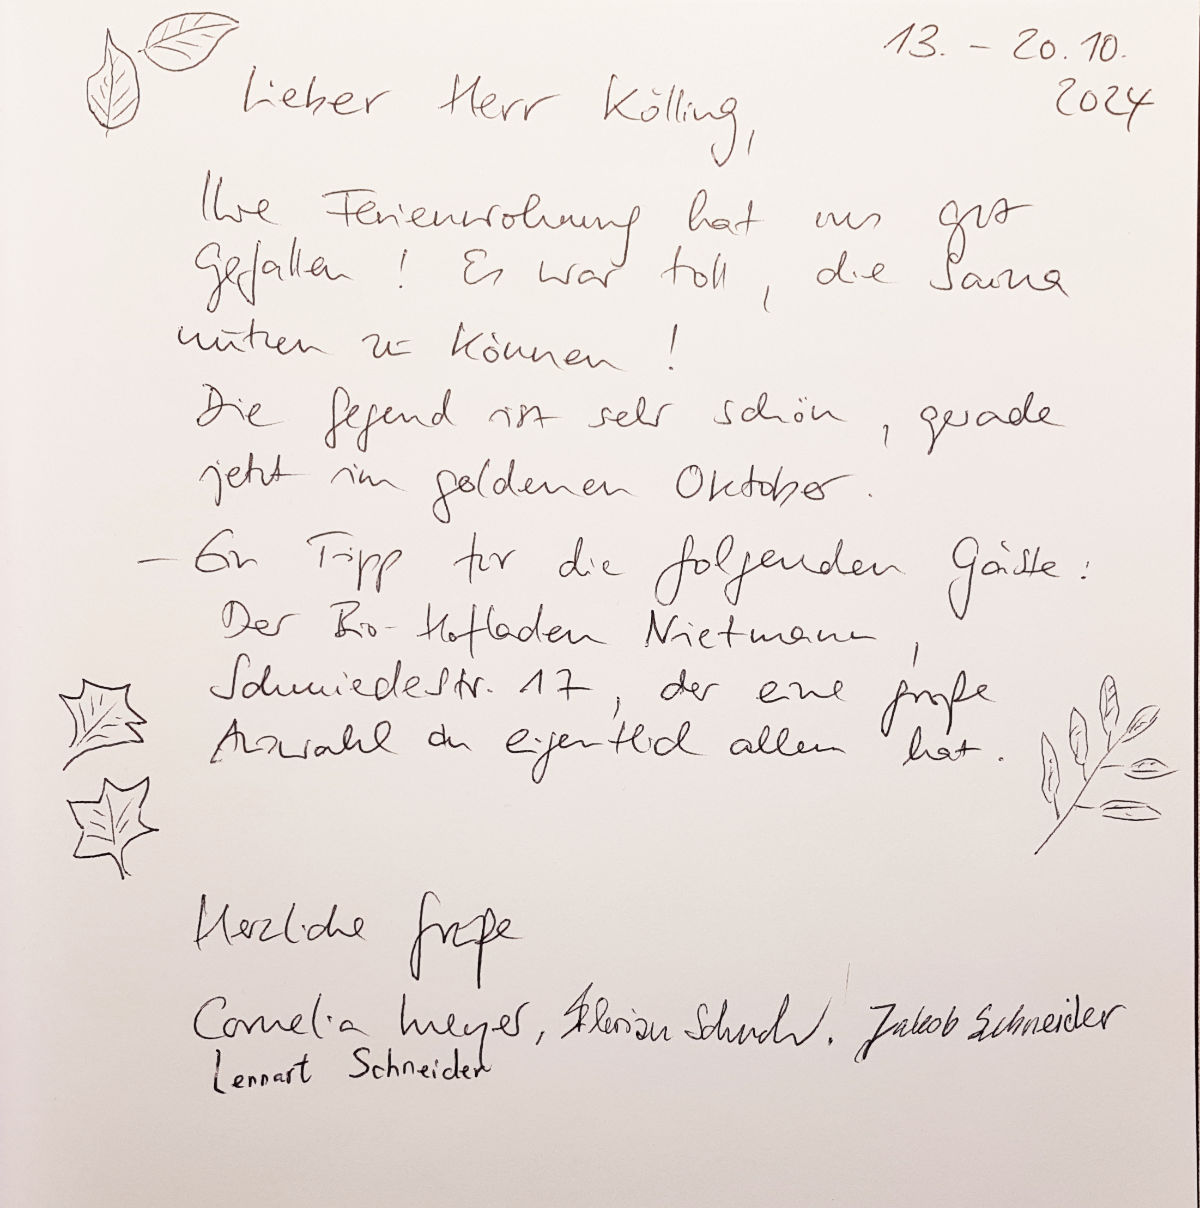 13. - 20.10.
2024
Lieber Herr Kölling,
Ihre Ferienwohnung hat uns gut
gefallen! Es war toll, die Sauna
nutzen zu können!
Die Gegend ist sehr schön, gerade
jetzt im goldenen Oktober.
- Ein Tipp für die folgenden Gäste:
Der Bio-Hofladen Nietmann,
Schmiedestr. 17, der eine große
Auswahl an eigentlich allem hat.
Herzliche Grüße
Cornelia Meyer, Florian Schneider, Jakob Schneider
Lennart Schneider